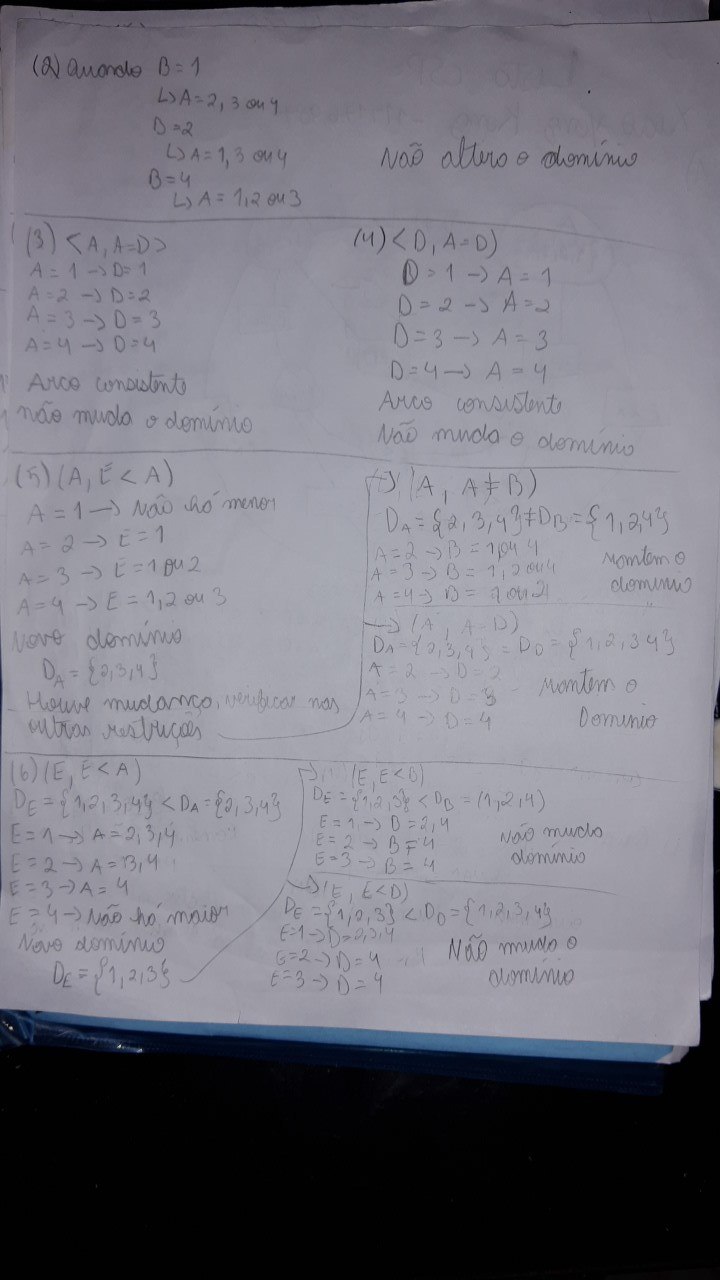 (2) Quando B=1
↳ A=2, 3 ou 4
D=2
↳ A=1, 3 ou 4
B=4
↳ A=1,2 ou 3
Não altera o domínio
(3) <A, A=D>
A=1 → D=1
A=2 → D=2
A=3 → D=3
A=4 → D=4
Arco consistente
não muda o domínio
(4) <D, A=D)
D=1 → A=1
D=2 → A=2
D=3 → A=3
D=4 → A=4
Arco consistente
Não muda o domínio
(5) (A, E<A)
A=1 → Não há menor
A=2 → E=1
A=3 → E=1 ou 2
A=4 → E=1,2 ou 3
Novo domínio
D_A={2,3,4}
Houve mudança, verificar nas
outras restrições
→ (A, A≠B)
D_A={2,3,4}≠D_B={1,2,4}
A=2 → B=1 ou 4
A=3 → B=1,2 ou 4
A=4 → B=1 ou 2
Mantem o
domínio
→ (A, A=D)
D_A={2,3,4}=D_D={1,2,3,4}
A=2 → D=2
A=3 → D=3
A=4 → D=4
Mantem o
Dominio
(6) (E, E<A)
D_E={1,2,3,4}<D_A={2,3,4}
E=1 → A=2,3,4
E=2 → A=3,4
E=3 → A=4
E=4 → Não há maior
Novo domínio
D_E={1,2,3}
→ (E, E<B)
D_E={1,2,3}<D_B=(1,2,4)
E=1 → B=2,4
E=2 → B=4
E=3 → B=4
Não muda
domínio
→ (E, E<D)
D_E={1,2,3}<D_D={1,2,3,4}
E=1 → D=2,3,4
E=2 → D=4
E=3 → D=4
Não muda o
domínio